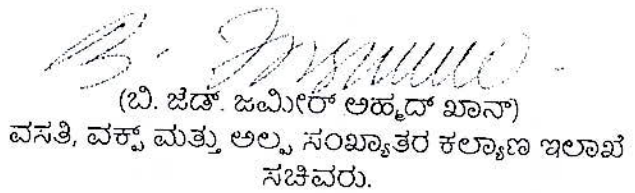 (ಬಿ. ಜೆಡ್. ಜಮೀರ್ ಅಹ್ಮದ್ ಖಾನ್)
ವಸತಿ, ವಕ್ಫ್ ಮತ್ತು ಅಲ್ಪ ಸಂಖ್ಯಾತರ ಕಲ್ಯಾಣ ಇಲಾಖೆ
ಸಚಿವರು.